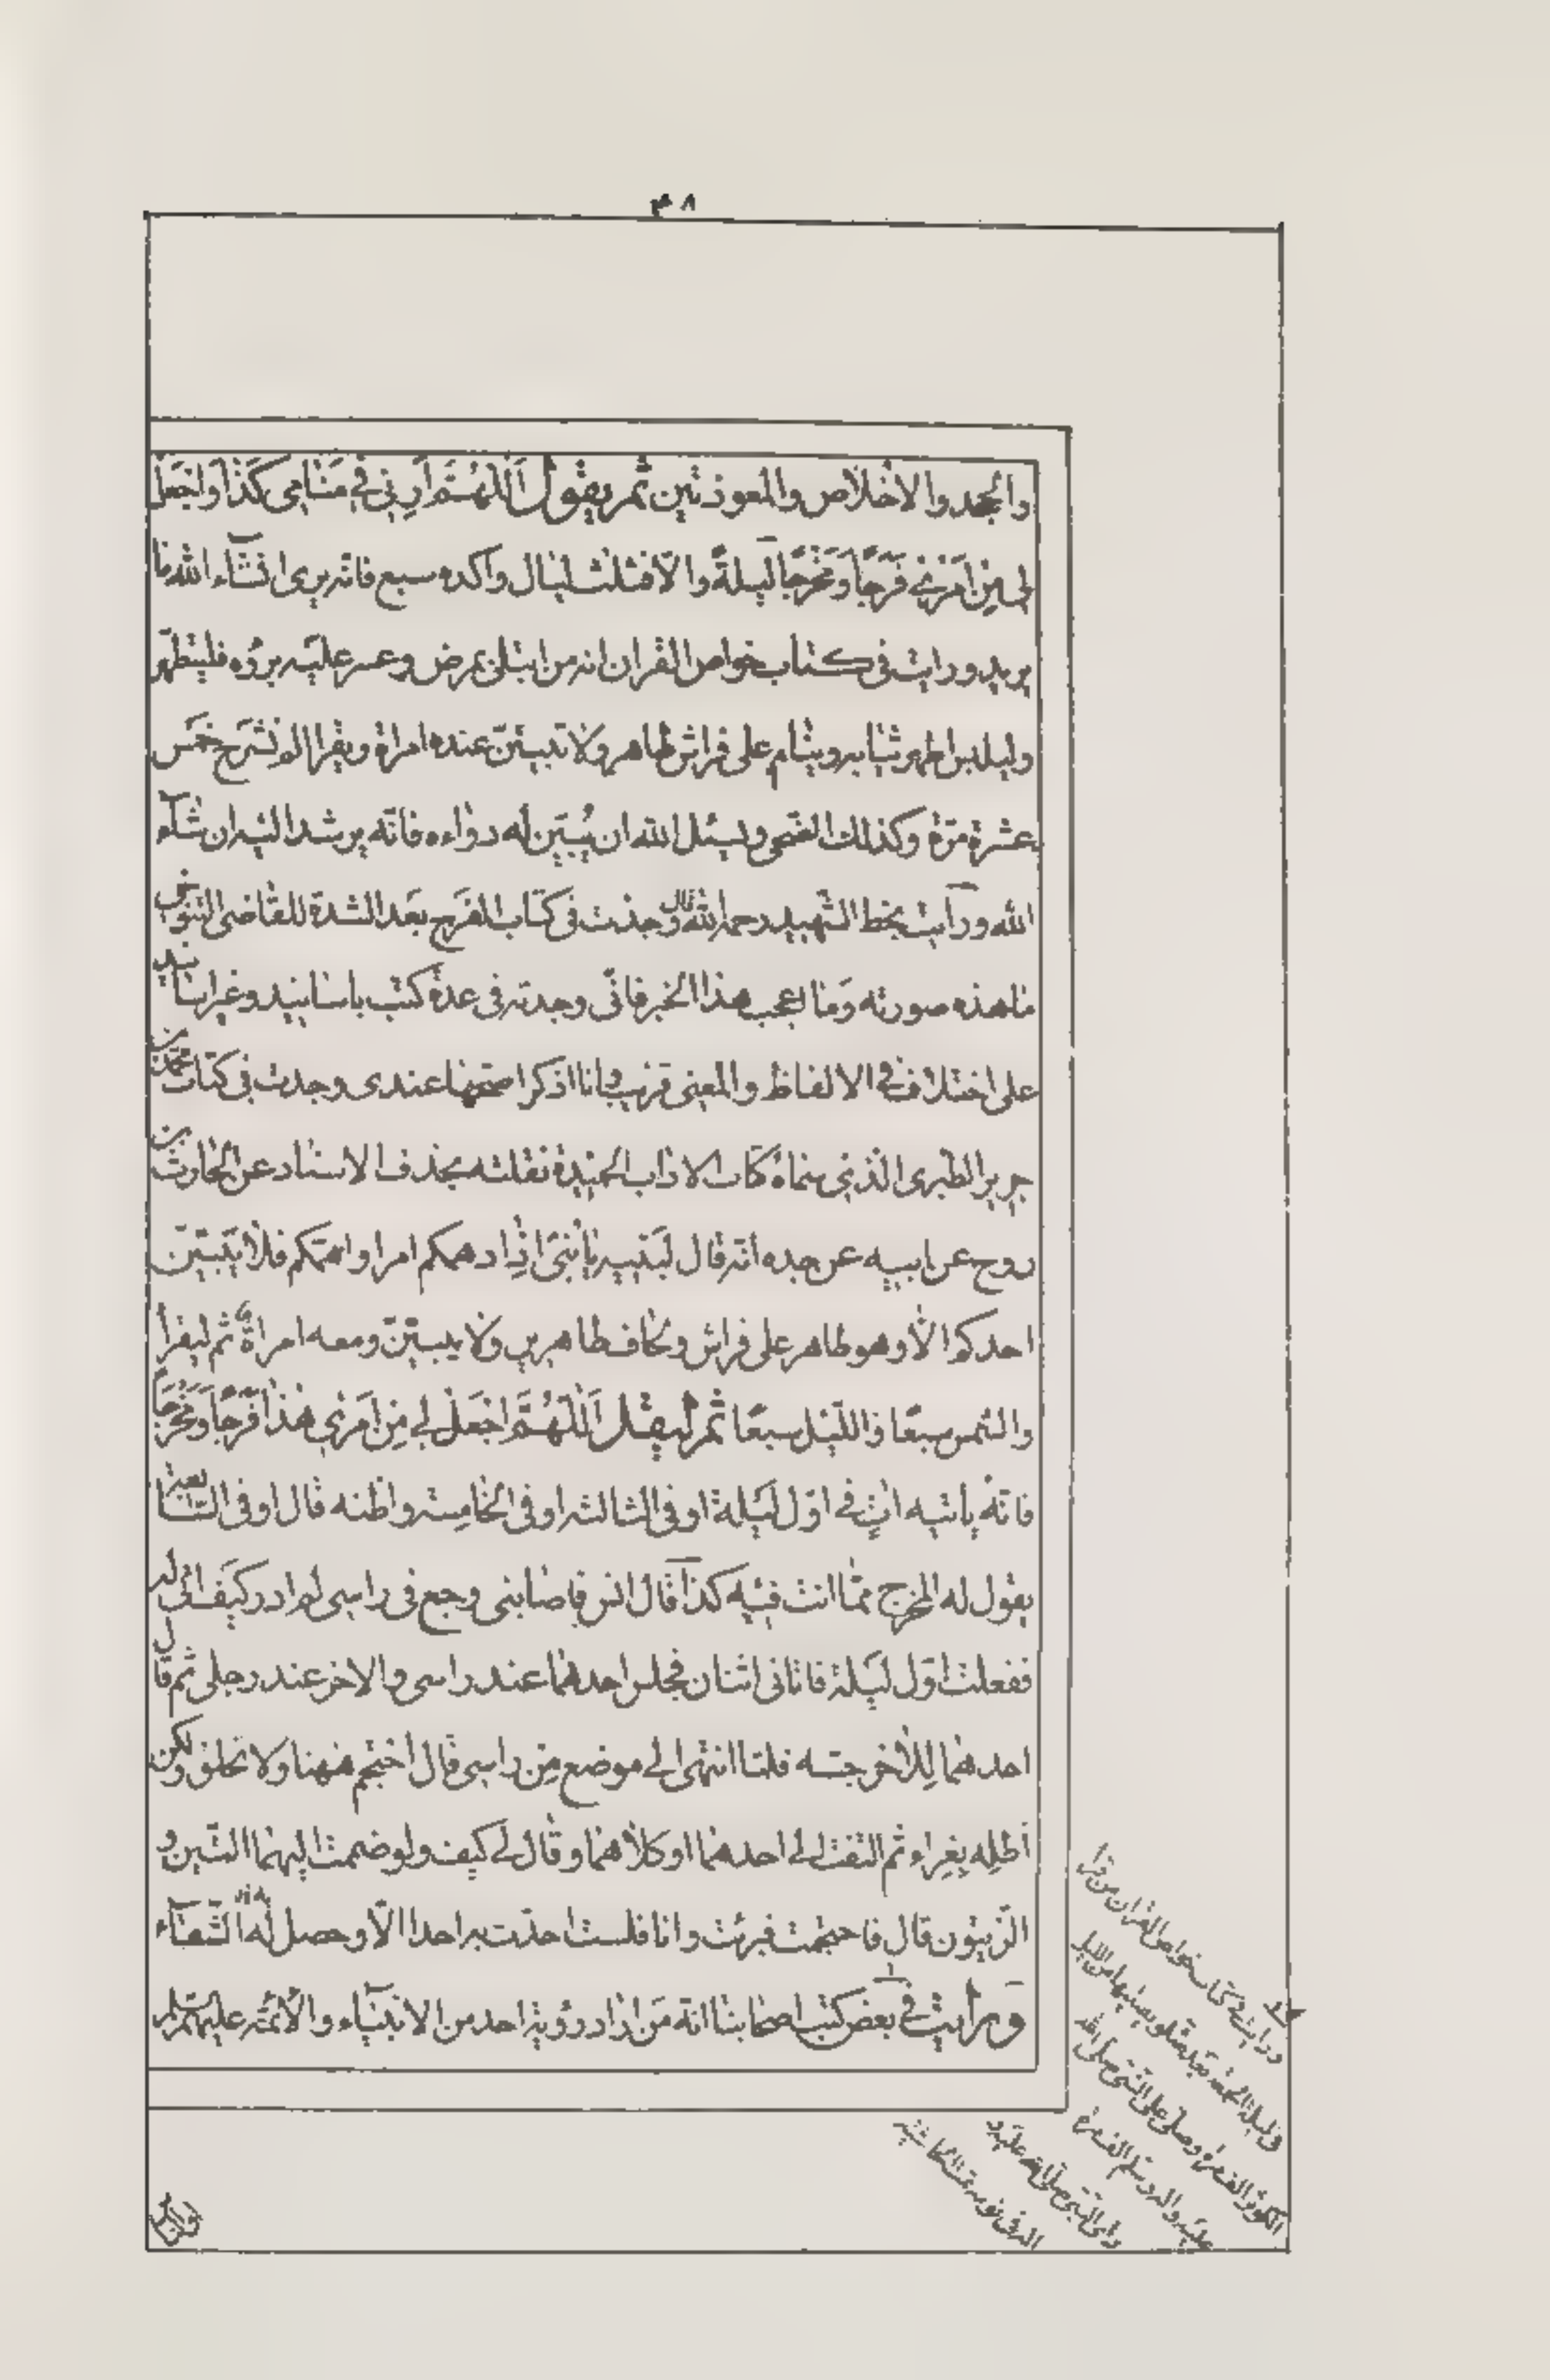 ٤٨
والجحد والاخلاص والمعوذتين ثم يقول اَللّهُمَّ اَرِنى فى مَنامى كَذا وَاجْعَل
لى مِنْ اَمْرى فَرَجًا وَمَخْرَجًا لَيلةً والّا فثلث ليال واكده سبع فانّه يرى انشآء الله ما
يريد ورايت فى كتاب خواص القران انه من ابتلى بمرض وعسر عليه برؤه فليتطهّر
وليلبس اطهر ثيابه وينام على فراش طاهر ولا تبيتنّ عنده امراة ويقرا الم نشرح خمس
عشرة مرّة وكذلك الضحى ويسئل الله ان يُبيّن له دواءه فانّه يرشد اليه ان شآء
الله ورأيت بخط الشّهيد رحمه الله قال وجدت فى كتاب الفرج بعد الشدة للقاضى التنوخى
ما هذه صورته وَما اعجب هذا الخبر فانّى وجدته فى عدة كتب باسانيد وغير اسانيد
على اختلاف فى الالفاظ والمعنى قريب وانا اذكر اصحّها عندى وجدت فى كتاب محمّد بن
جرير الطبرى الّذى سماه كتاب الاداب الحميدة نقلته بحذف الاسناد عن الحارث بن
روح عن ابيه عن جده انّه قال لبَنيه يابَنىّ اِذا دهمكم امر او اهمّكم فلا يَبيتنّ
احدكم الّا وهو طاهر على فراش ولحاف طاهرين ولا يبيتنّ ومعه امراة ثم ليقرأ
والشمس سبعًا واللّيل سبعًا ثم ليقل اَللّهُمَّ اجْعَلْ لى مِنْ اَمْرى هذا فَرَجًا وَمَخْرَجًا
فانّهُ ياتيه اتٍ فى اوّل لَيلة او فى الثالثه او فى الخامسة واظنه قال او فى السّابعة
يقول له المخرج ممّا انت فيه كذا قال انس فاصابنى وجع فى راسى لم ادر كيف اتى له
ففعلت اوّل لَيلة فاتانى اثنان فجلس احدهما عند راسى والاخر عند رجلى ثم قال
احدهما للاخر جسّه فلمّا انتهى الى موضع مِنْ راسى قال احتجم ههنا ولا تحلق ولكن
اطله بِغِراء ثم التفت الى احدهما او كلاهما وقال لى كيف ولو ضممت اليهما التّين و
الزّيتون قال فاحتجمت فبرئت وانا فلست احدّث به احدا الّا وحصل له به الشّفآء
وَرأيت فى بعض كتب اصحابنا انّه مَن اراد رؤية احد من الانبيآء والائمّه عليهم السّلم
ورايت فى كتاب خواص القران من قرأ
فى ليلة الجمعه بعد صلوة يصلّيها من الليل
الكوثر الف مرة وصلّى على النّبىّ صلى الله
عليه واله وسلم الف مرة
راى النّبىّ صلّى الله عليه و
اله فى نومه